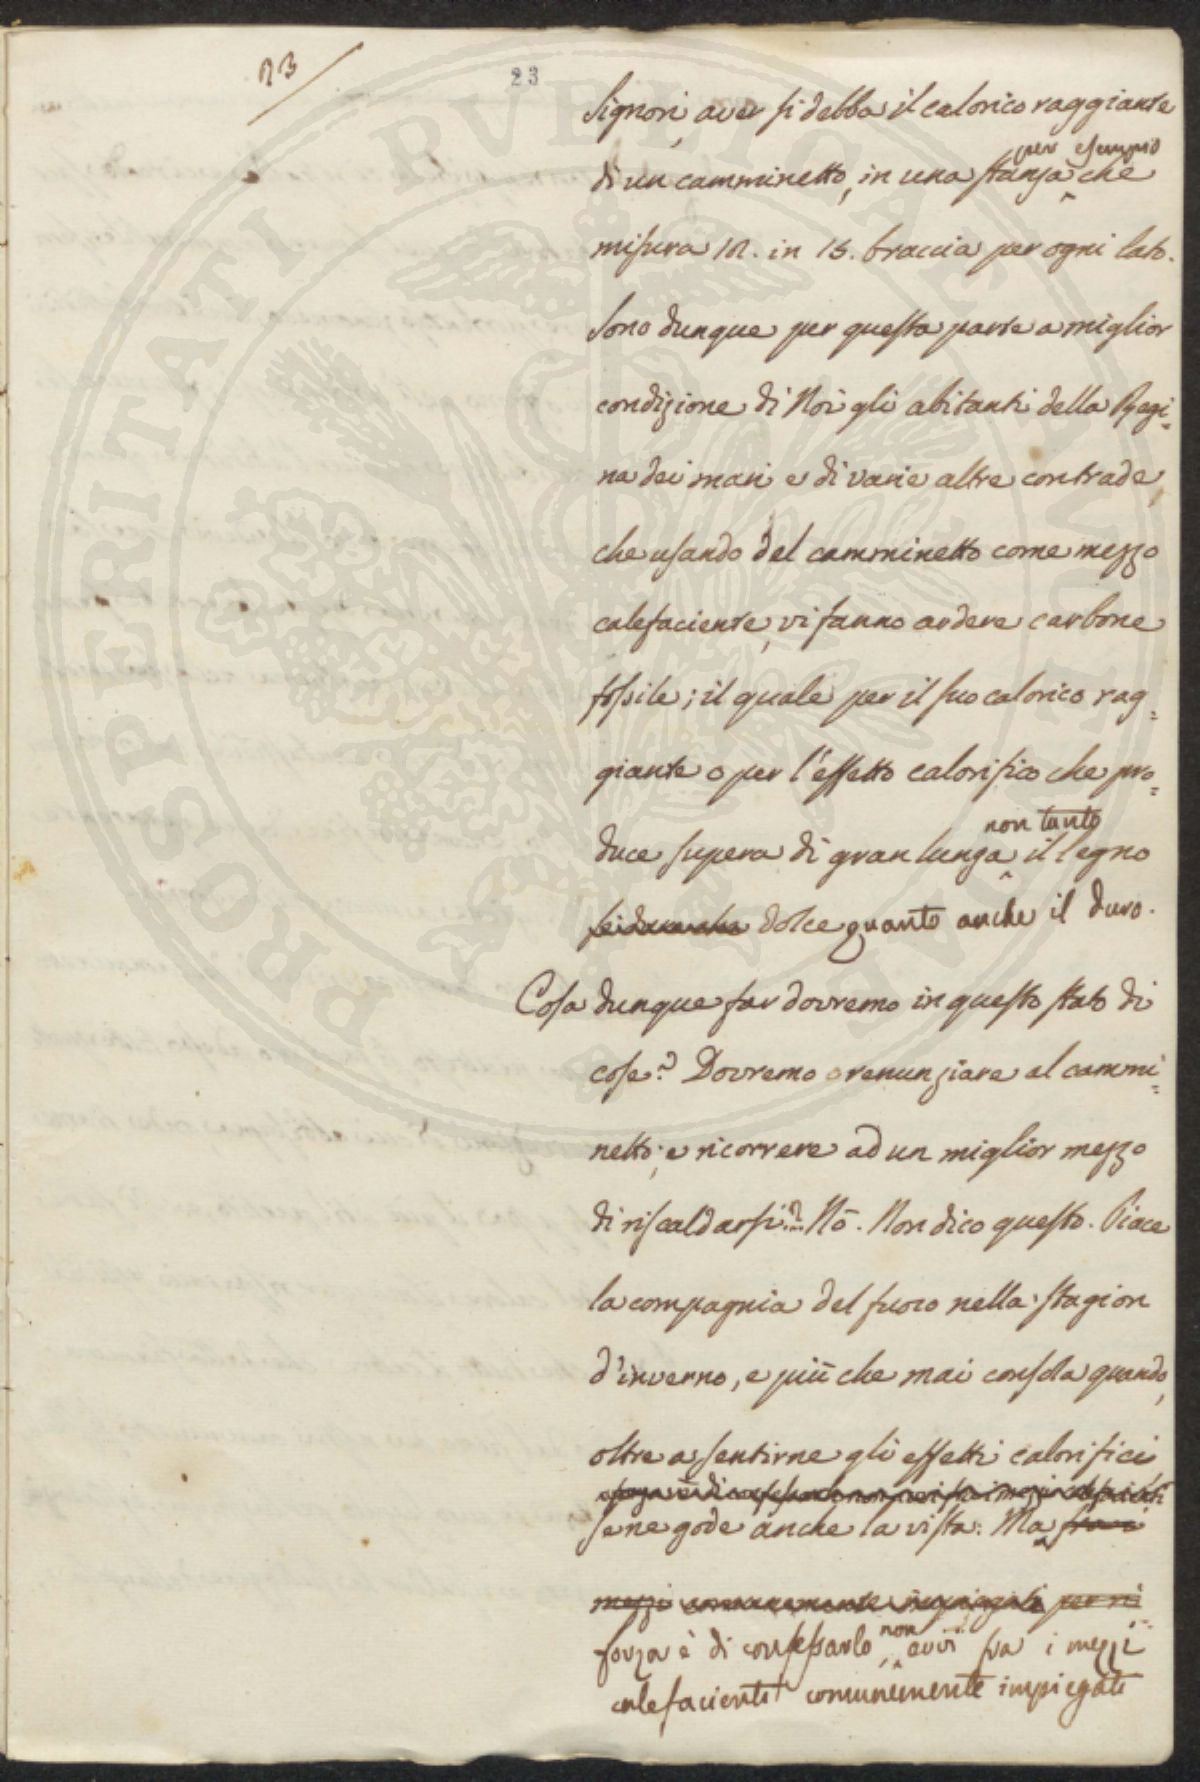 23
23
Signori, aver si debba il calorico raggiante
di un camminetto, in una stanza per esempio che
misura 12. in 15. braccia per ogni lato.
Sono dunque per questa parte a miglior
condizione di Noi gli abitanti della Regi=
na dei mari e di varie altre contrade,
che usando del camminetto come mezzo
calefaciente, vi fanno ardere carbone
fossile; il quale per il suo calorico rag=
giante o per l'effetto calorifico che pro=
duce supera di gran lunga non tanto il legno
dolce quanto anche il duro.
Cosa dunque far dovremo in questo stato di
cose? Dovremo renunziare al cammi=
netto, e ricorrere ad un miglior mezzo
di riscaldarsi?... Nò. Non dico questo. Piace
la compagnia del fuoco nella stagion
d'inverno, e più che mai consola quando,
oltre a sentirne gli effetti calorifici
se ne gode anche la vista. Ma fra i
mezzi comunemente impiegati per ri
forza è di confessarlo, non avvi fra i mezzi
calefacienti comunemente impiegati
PROSPERITATI PVBLICAE AVGENDAE